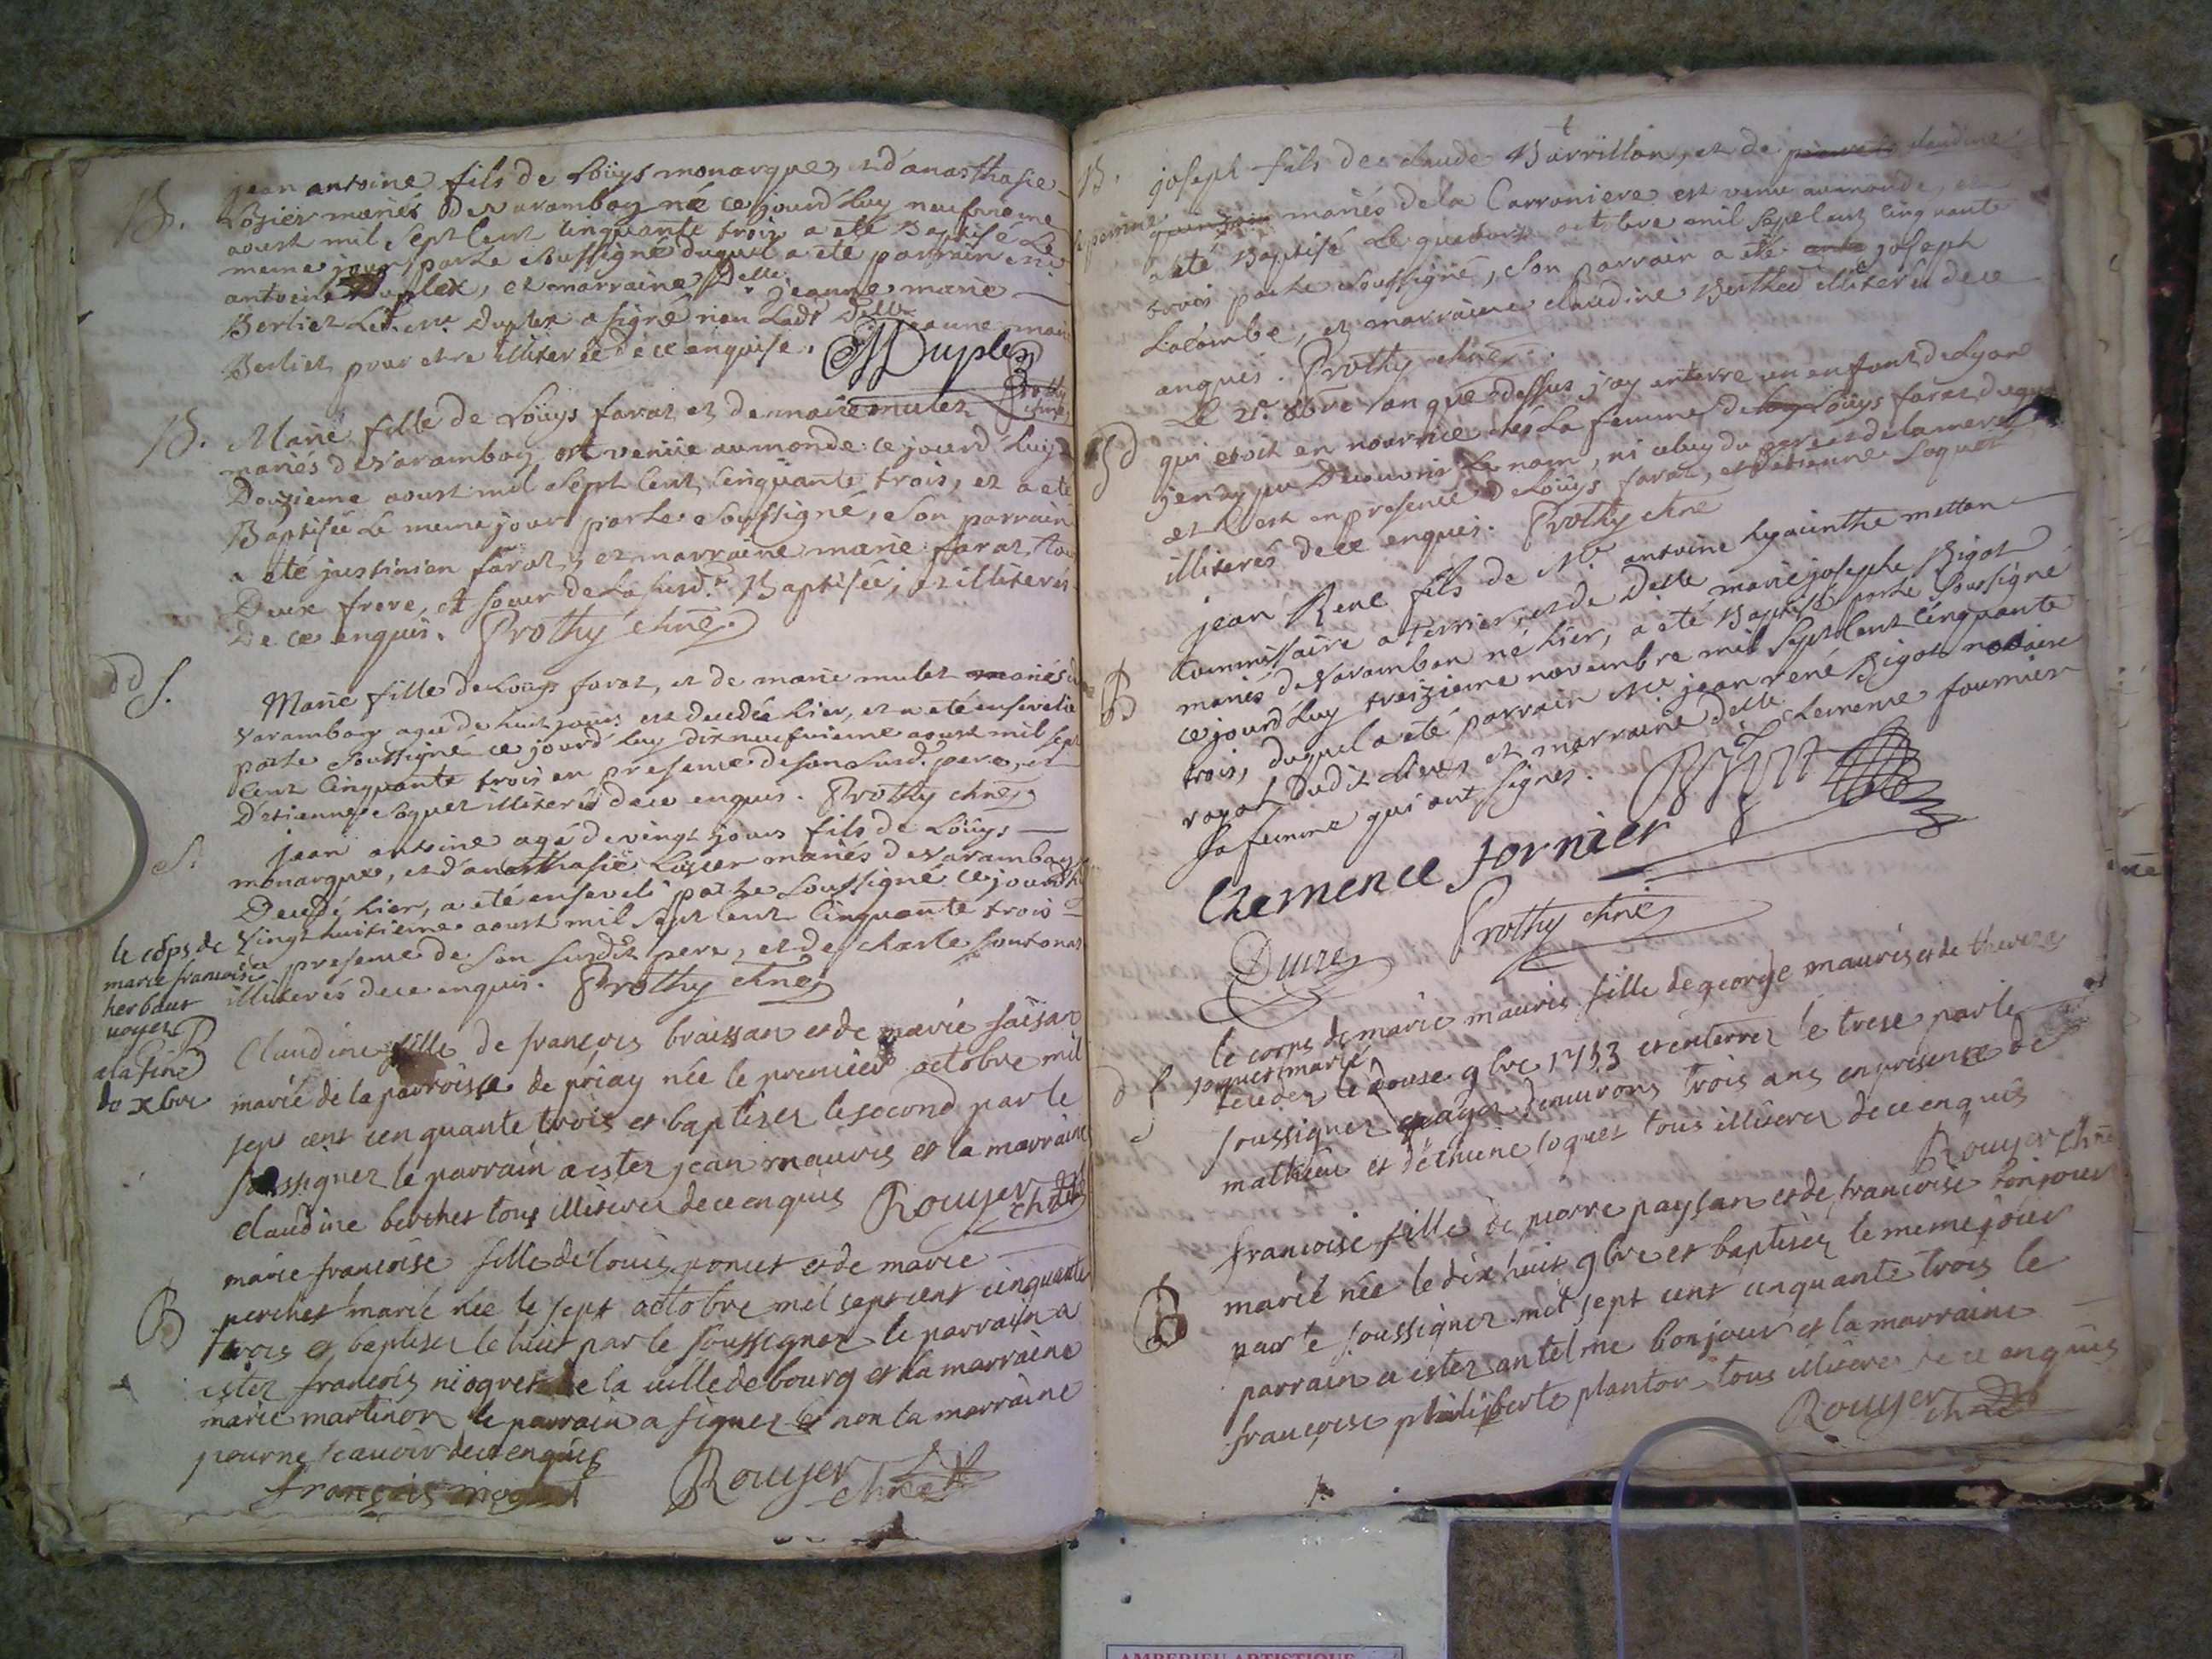 B. jean antoine fils de Loüys monarque, et d'anasthasie
Losier mariés de varambon né ce jourd'huy neufvieme
aoust mil sept cent cinquante trois a été Baptisé Le
meme jour, par Le soussigné duquel a été parrain me
antoine Duplex, et marraine Delle. jeanne marie
Berliet Led. me Duplex a signé non Lade. Delle jeanne marie
Berliet pour etre illiterée de ce enquise. Duplex
Prothy chne
B. Marie fille de Loüys farat et de marie mulet
mariés de Varambon est venüe au monde ce jourd'huy
Douzieme aoust mil sept cent cinquante trois, et a été
Baptisée Le meme jour par Le soussigné, son parrain
a été justinien farat, et marraine marie farat tou
Deux frere, et soeur de La susd.e Baptisée, et illiterés
De ce enquis. Prothy chne.
S. Marie fille de Loüys farat, et de marie mulet mariés de
Varambon agée de huit jours est decedée hier, et a été ensevelie
par Le soussigné ce jourd'huy dix neufvieme aoust mil sept
cent cinquante trois en presence de son susd. pere, et
D'etienne Loquet illiterés de ce enquis. Prothy chne,
S. jean antoine agé de vingt jours fils de Loüys
monarque, et d'anasthasie Losier mariés de varambon
Decedé hier, a été enseveli par Le soussigné ce jourd'hu
Vingt huitieme aoust mil sept cent cinquante trois
presence de son susdit pere, et de charle soutonas
illiterés de ce enquis. Prothy chne
le corps de
marie francoise
herbaut
voyez
a la fin
do xbre
B Claudine fille de françois braissan et de marie faisan
marié de la parroisse de priay née le premier octobre mil
sept cent cinquante trois et baptisez le second par le
soussignez le parrain a estez jean mauris et la marraine
claudine berchet tous illiterez de ce enquis Rouyer chne
B marie francoise fille de louis ponset et de marie
perchet marié née le sept octobre mil sept cent cinquante
trois et baptisez le huit par le soussignez le parrain a
estez francois niogret de la ville de bourg et la marraine
marie martinon le parrain a signez et non la marraine
pour ne scavoir de ce enquis
françois niogret Rouyer chne
B. joseph fils de claude Barrillon, et de claudine
perrin mariés de la Carroniere est venu au monde, et
a été Baptisé Le quatorze octobre mil sept cent cinquante
trois par Le soussigné, son parrain a été joseph
Lacombe, et marraine claudine Berthet illiterés de ce
enquis. Prothy chne.
Sd Le 21e. 8bre l'an que dessus j'ay enterré un enfant de Lyon
qui etoit en nourrice chés La femme de Loüys farat duquel
je n'ay pu Decouvrir Le nom, ni celuy du pere et de la mere
et c'est en presence de Loüys farat, et d'etienne Loquet
illiterés de ce enquis. Prothy chne
B jean René fils de Mr. antoine hyacinthe metton
Commissaire a terrier, et de Delle marie josephe Bigot
mariés de Varambon né hier, a été Baptisé par Le soussigné
ce jourd'huy treizieme novembre mil sept cent cinquante
trois, duquel a été parrain me jean rené Bigot notaire
royal Dudit Lieu, et marraine delle Clemence fournier
sa femme qui ont signés. Bigot
Clemence fornier
Prothy chne
le corps de marie mauris fille de george mauris et de thereze
joquet marié,
decedez le douse 9bre 1753 et enterrez le trese par le
soussignez et agez d'environs trois ans en presence de
mathieu et d'etiene loquet tous illiterez de ce enquis
Rouyer chne
B francoise fille de pierre paysan et de francoise bonjour
marié née le dix huit 9bre et baptisez le meme jour
par le soussignez mil sept cent cinquante trois le
parrain a estez antelme bonjour et la marraine
françoise philiberte plantor tous illiterez de ce enquis
Rouyer chne
AMBERIEU ARTISTIQUE